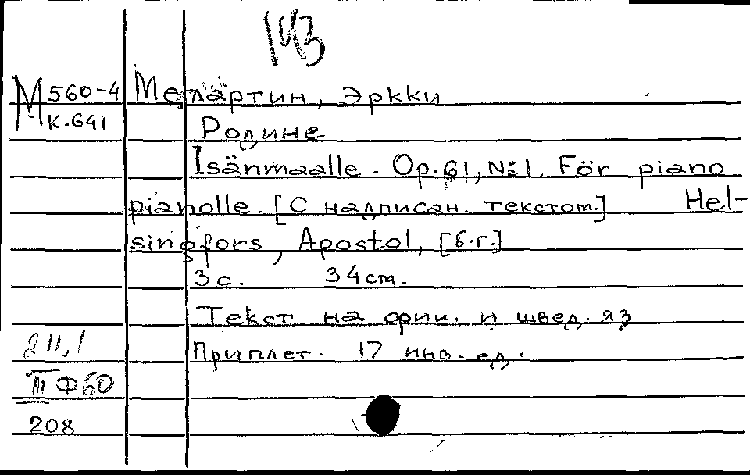 143
М 560-4 Мелартин, Эркки
К.641 Родине
Isänmaalle. Op.61, №1. För piano
pianolle. [С надписан. текстом.] Hel-
singfors, Apostol, [б.г.]
3 с. 34 см.
Текст на фин. и швед. яз
Приплет. 17 инв. ед.
III Ф60
208